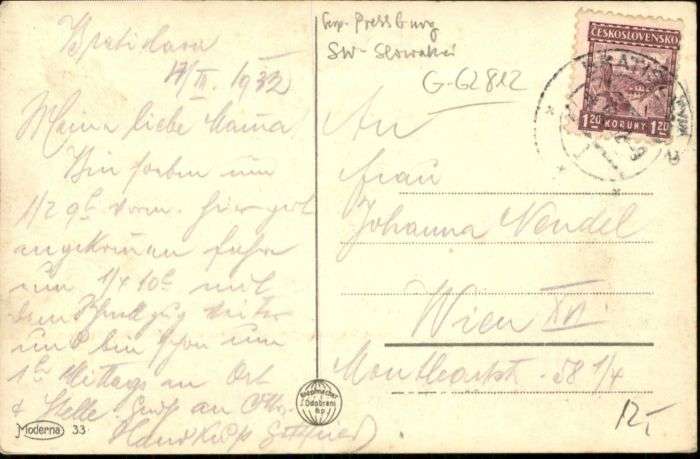 Bratislava
17/III. 1932
Meine liebe Mama!
Bin soeben um
1/2 9h vorm. hier gut
angekommen fahre
um 1/4 10h mit
dem Schnellzug weiter
und bin schon um
1h Mittags an Ort
& Stelle.
Handkuß Gottfried
Moderna 33
Pressburg
SW-Slowakei
G-62812
ČESKOSLOVENSKO
1.20 KORUNY 1.20
An
Frau
Johanna Nendel
Wien XII
58 1/4
12,-